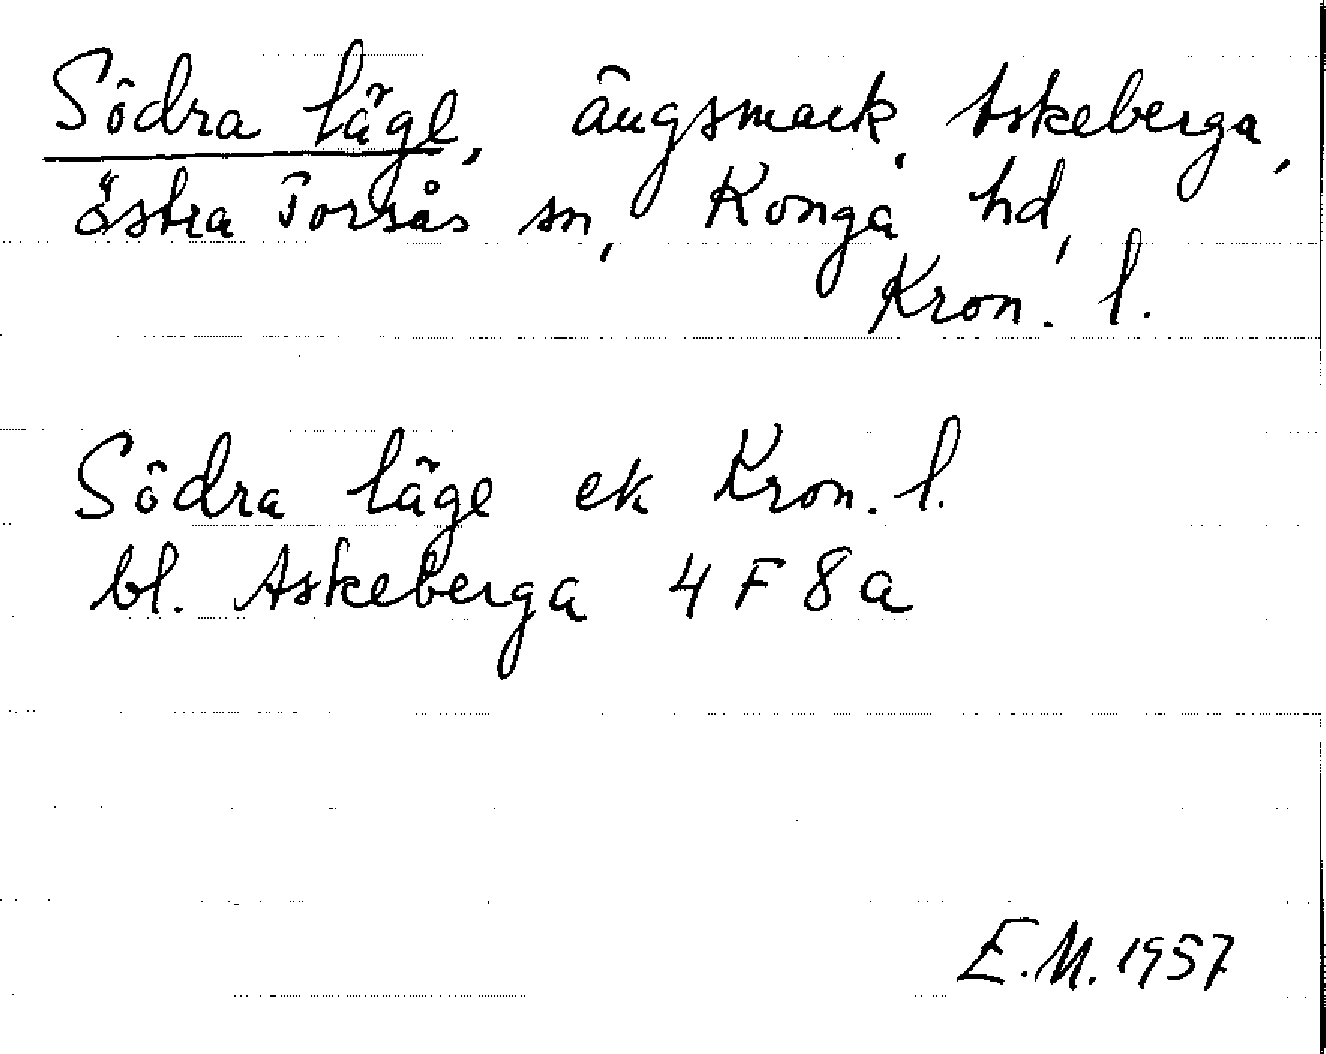 Södra läge, ängsmark, Askeberga,
Östra Torsås sn, Konga hd,
Kron. l.
Södra läge ek Kron. l.
bl. Askeberga 4 F 8 a
E.M. 1957